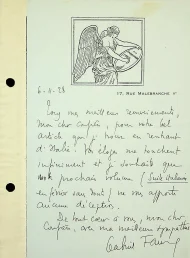 17, RUE MALEBRANCHE Vᵉ
6-4-28
Tous mes meilleurs remerciements,
mon cher confrère, pour votre bel
article que je trouve en rentrant
d'Italie. Vos éloges me touchent
infiniment et je souhaite que
mon prochain volume (Suite italienne
en
) ne vous apporte
aucune déception.
De tout cœur à vous, mon cher
confrère, avec ma meilleure sympathie
Gabriel Faure